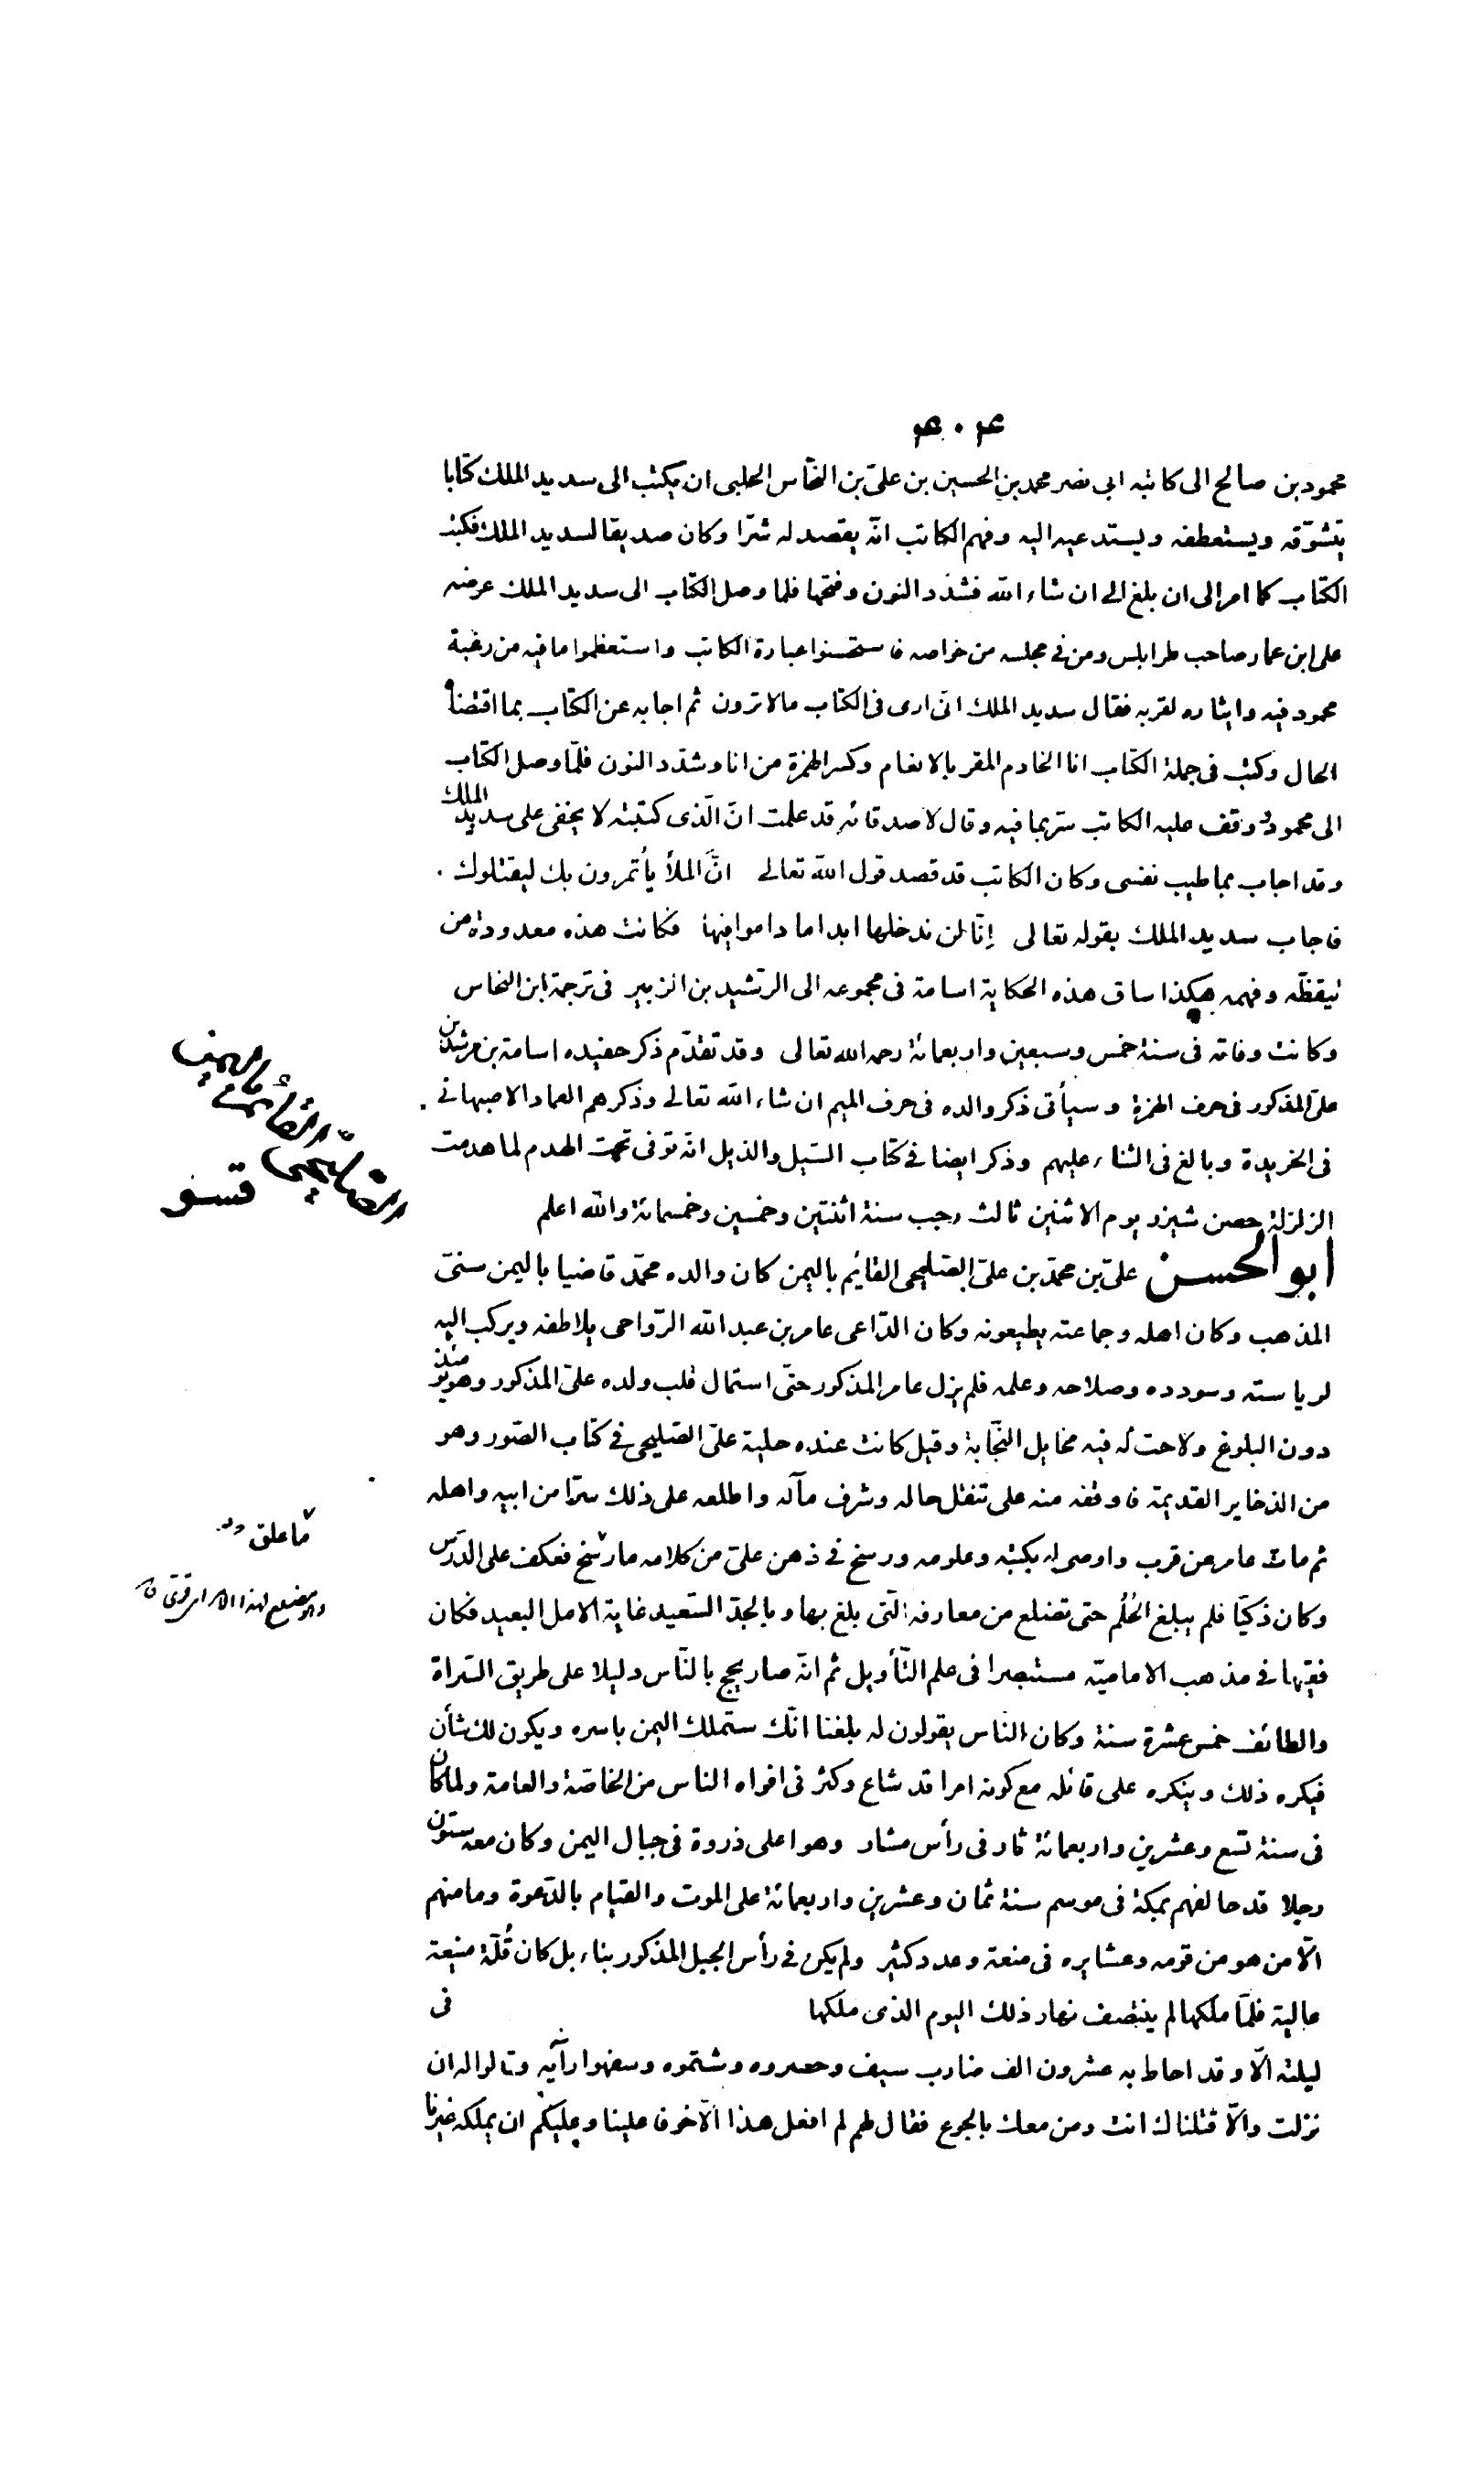 محمود بن صالح الى كاتبه ابي نصر محمد بن الحسين بن علىّ بن النحّاس الحلبى ان يكتب الى سديد الملك كتابا
يتشوّقه ويستعطفه ويستدعيه اليه وفهم الكاتب انّه يقصد له شرّا وكان صديقا لسديد الملك فكتب
الكتاب كما امر الى ان بلغ الى ان شاء الله فشدّد النون وفتحها فلما وصل الكتاب الى سديد الملك عرضه
على ابن عمار صاحب طرابلس ومن فى مجلسه من خواصه فاستحسنوا عبارة الكاتب واستعظموا ما فيه من رغبة
محمود فيه وايثاره لقربه فقال سديد الملك انّى ارى فى الكتاب مالا ترون ثم اجابه عن الكتاب بما اقتضاه
الحال وكتب فى جملة الكتاب انا الخادم المقر بالانعام وكسر الهمزة من انا وشدّد النون فلمّا وصل الكتاب
الى محمود ووقف عليه الكاتب سرّ بما فيه وقال لاصدقائه قد علمت انّ الّذى كتبته لا يخفى على سديد الملك
وقد اجاب بما طيب نفسى وكان الكاتب قد قصد قول الله تعالى انّ الملأ يأتمرون بك ليقتلوك .
فاجاب سديد الملك بقوله تعالى إنّا لن ندخلها ابدا ما داموا فيها فكانت هذه معدودة من
تيقظّه وفهمه هكذا ساق هذه الحكاية اسامة فى مجموعه الى الرّشيد بن الزبير فى ترجمة ابن النحاس
وكانت وفاته فى سنة خمس وسبعين واربعمائة رحمه الله تعالى وقد تقدّم ذكر حفيده اسامة بن مرشد بن
علىّ المذكور فى حرف الهمزة وسيأتى ذكر والده فى حرف الميم ان شاء الله تعالى وذكرهم العماد الاصبهانى .
فى الخريدة وبالغ فى الثناء عليهم وذكر ايضا فى كتاب السّيل والذيل انّه توفى تحت الهدم لما هدمت
الزلزلة حصن شيزر يوم الاثنين ثالث رجب سنة اثنتين وخمسين وخمسمائة والله اعلم
الصّليحىّ القائم باليمن
ابو الحسن علىّ بن محمّد بن علىّ الصّليحى القائيم باليمن كان والده محمّد قاضيا باليمن سنىّ
المذهب وكان اهله وجماعته يطيعونه وكان الدّاعى عامر بن عبد الله الرّواحى يلاطفه ويركب اليه
لرياسته وسودده وصلاحه وعلمه فلم يزل عامر المذكور حتّى استمال قلب ولده علىّ المذكور وهو يومئذ
دون البلوغ ولاحت له فيه مخايل النّجابة وقيل كانت عنده حلية علىّ الصّليحى فى كتاب الصّور وهو
من الذخاير القديمة فاوقفه منه على تنقل حاله وشرف مآله واطلعه على ذلك سرّا من ابيه واهله
ثم مات عامر عن قرب واوصى له بكتبه وعلومه ورسخ فى ذهن علىّ من كلامه ما رسّخ فعكف على الدرس
ما علق
وكان ذكيّا فلم يبلغ الحُلُم حتى تضلع من معارفه الّتى بلغ بها وبالجدّ السّعيد غاية الامل البعيد فكان
فقيها فى مذهب الاماميّة مستبصرا فى علم التّأويل ثم انّه صار يحج بالنّاس دليلا على طريق السّراة
والطائف خمس عشرة سنة وكان الناس يقولون له بلغنا انّك ستملك اليمن باسره ويكون لك شأن
فيكره ذلك وينكره على قائله مع كونه امرا قد شاع وكثر فى افواه الناس من الخاصّة والعامة ولما كان
فى سنة تسع وعشرين واربعمائة ثار فى رأس مشار وهو اعلى ذروة فى جبال اليمن وكان معه ستّون
رجلا قد حالفهم بمكة فى موسم سنة ثمان وعشرين واربعمائة على الموت والقيام بالدّعوة وما منهم
الّا من هو من قومه وعشايره فى منعة وعدد كثير ولم يكن فى رأس الجبل المذكور بناء بل كان قُلّة منيعة
عالية فلمّا ملكها لم ينتصف نهار ذلك اليوم الذى ملكها فى
ليلته الّا وقد احاط به عشرون الف ضارب سيف وحصروه وشتموه وسفهوا رأيه وقالوا له ان
نزلت والّا قتلناك انت ومن معك بالجوع فقال لهم لم افعل هذا الّا خوفا علينا وعليكم ان يملكه غيرنا